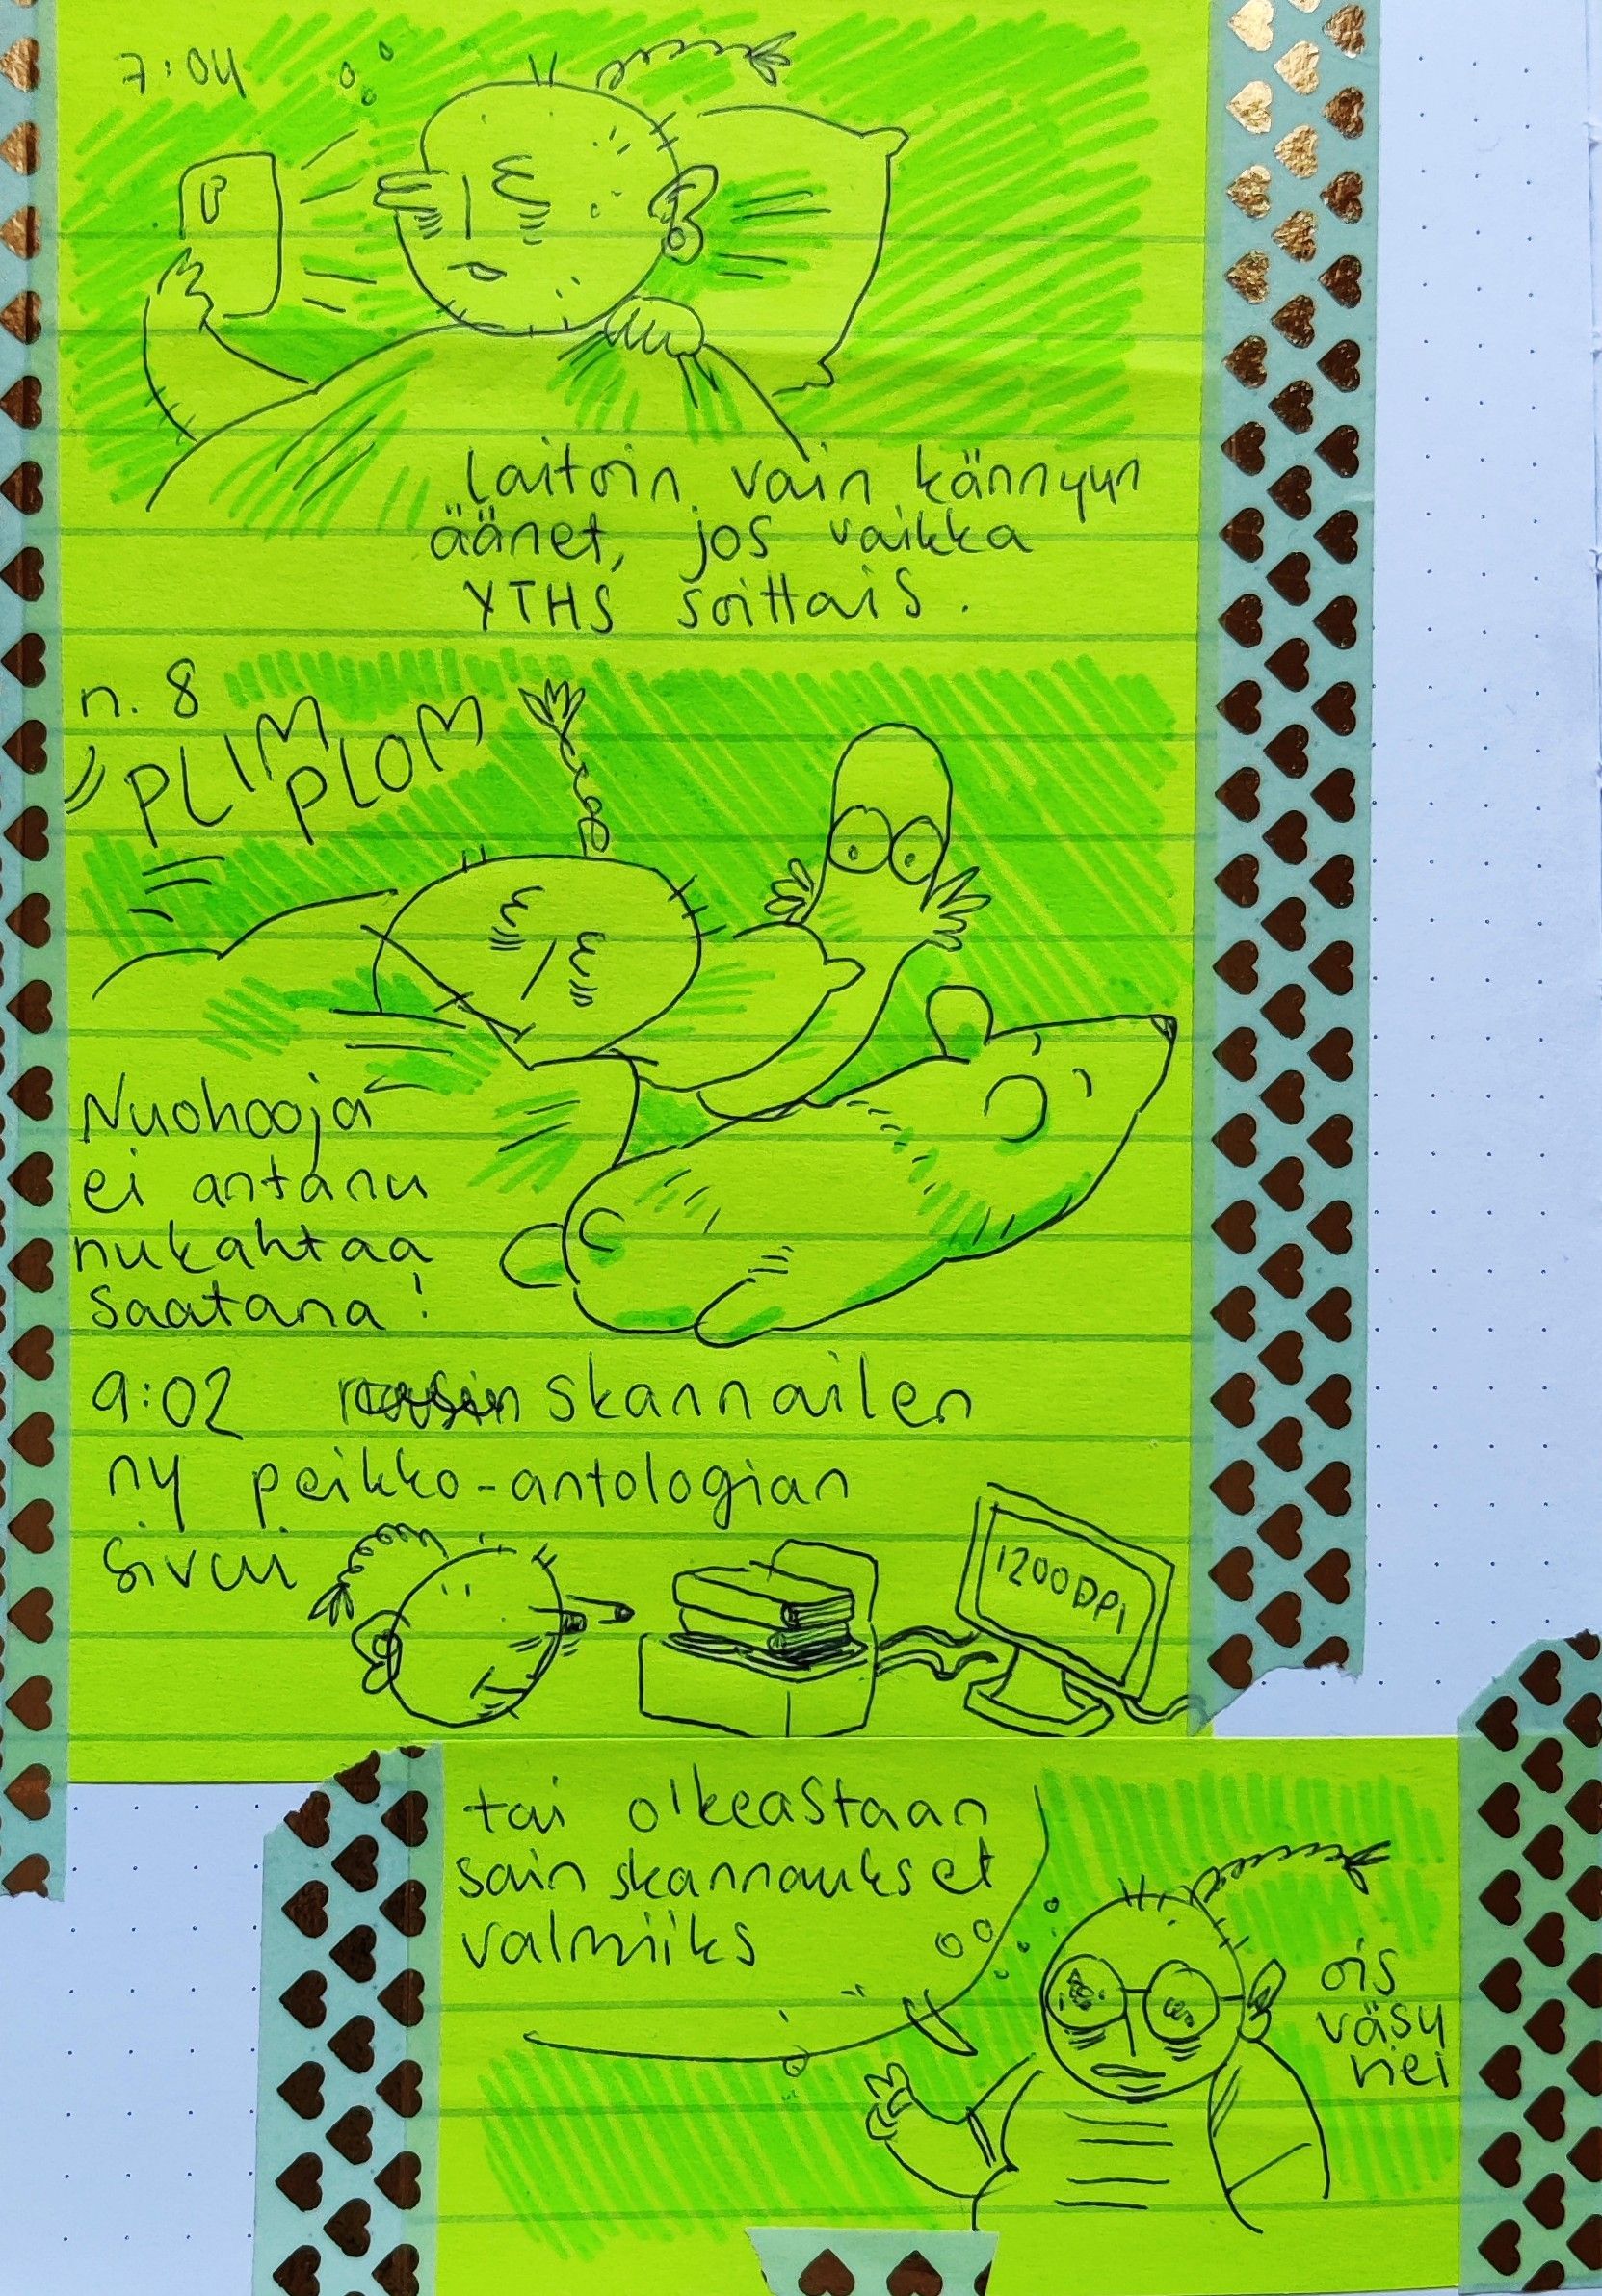 7:04
laitoin vain kännyyn
äänet, jos vaikka
YTHS soittais.
n. 8
PLIM
PLOM
Nuohooja
ei antanu
nukahtaa
saatana!
9:02 skannailen
ny peikko-antologian
sivui
1200DPI
tai oikeastaan
sain skannaukset
valmiiks
ois
väsy
nei